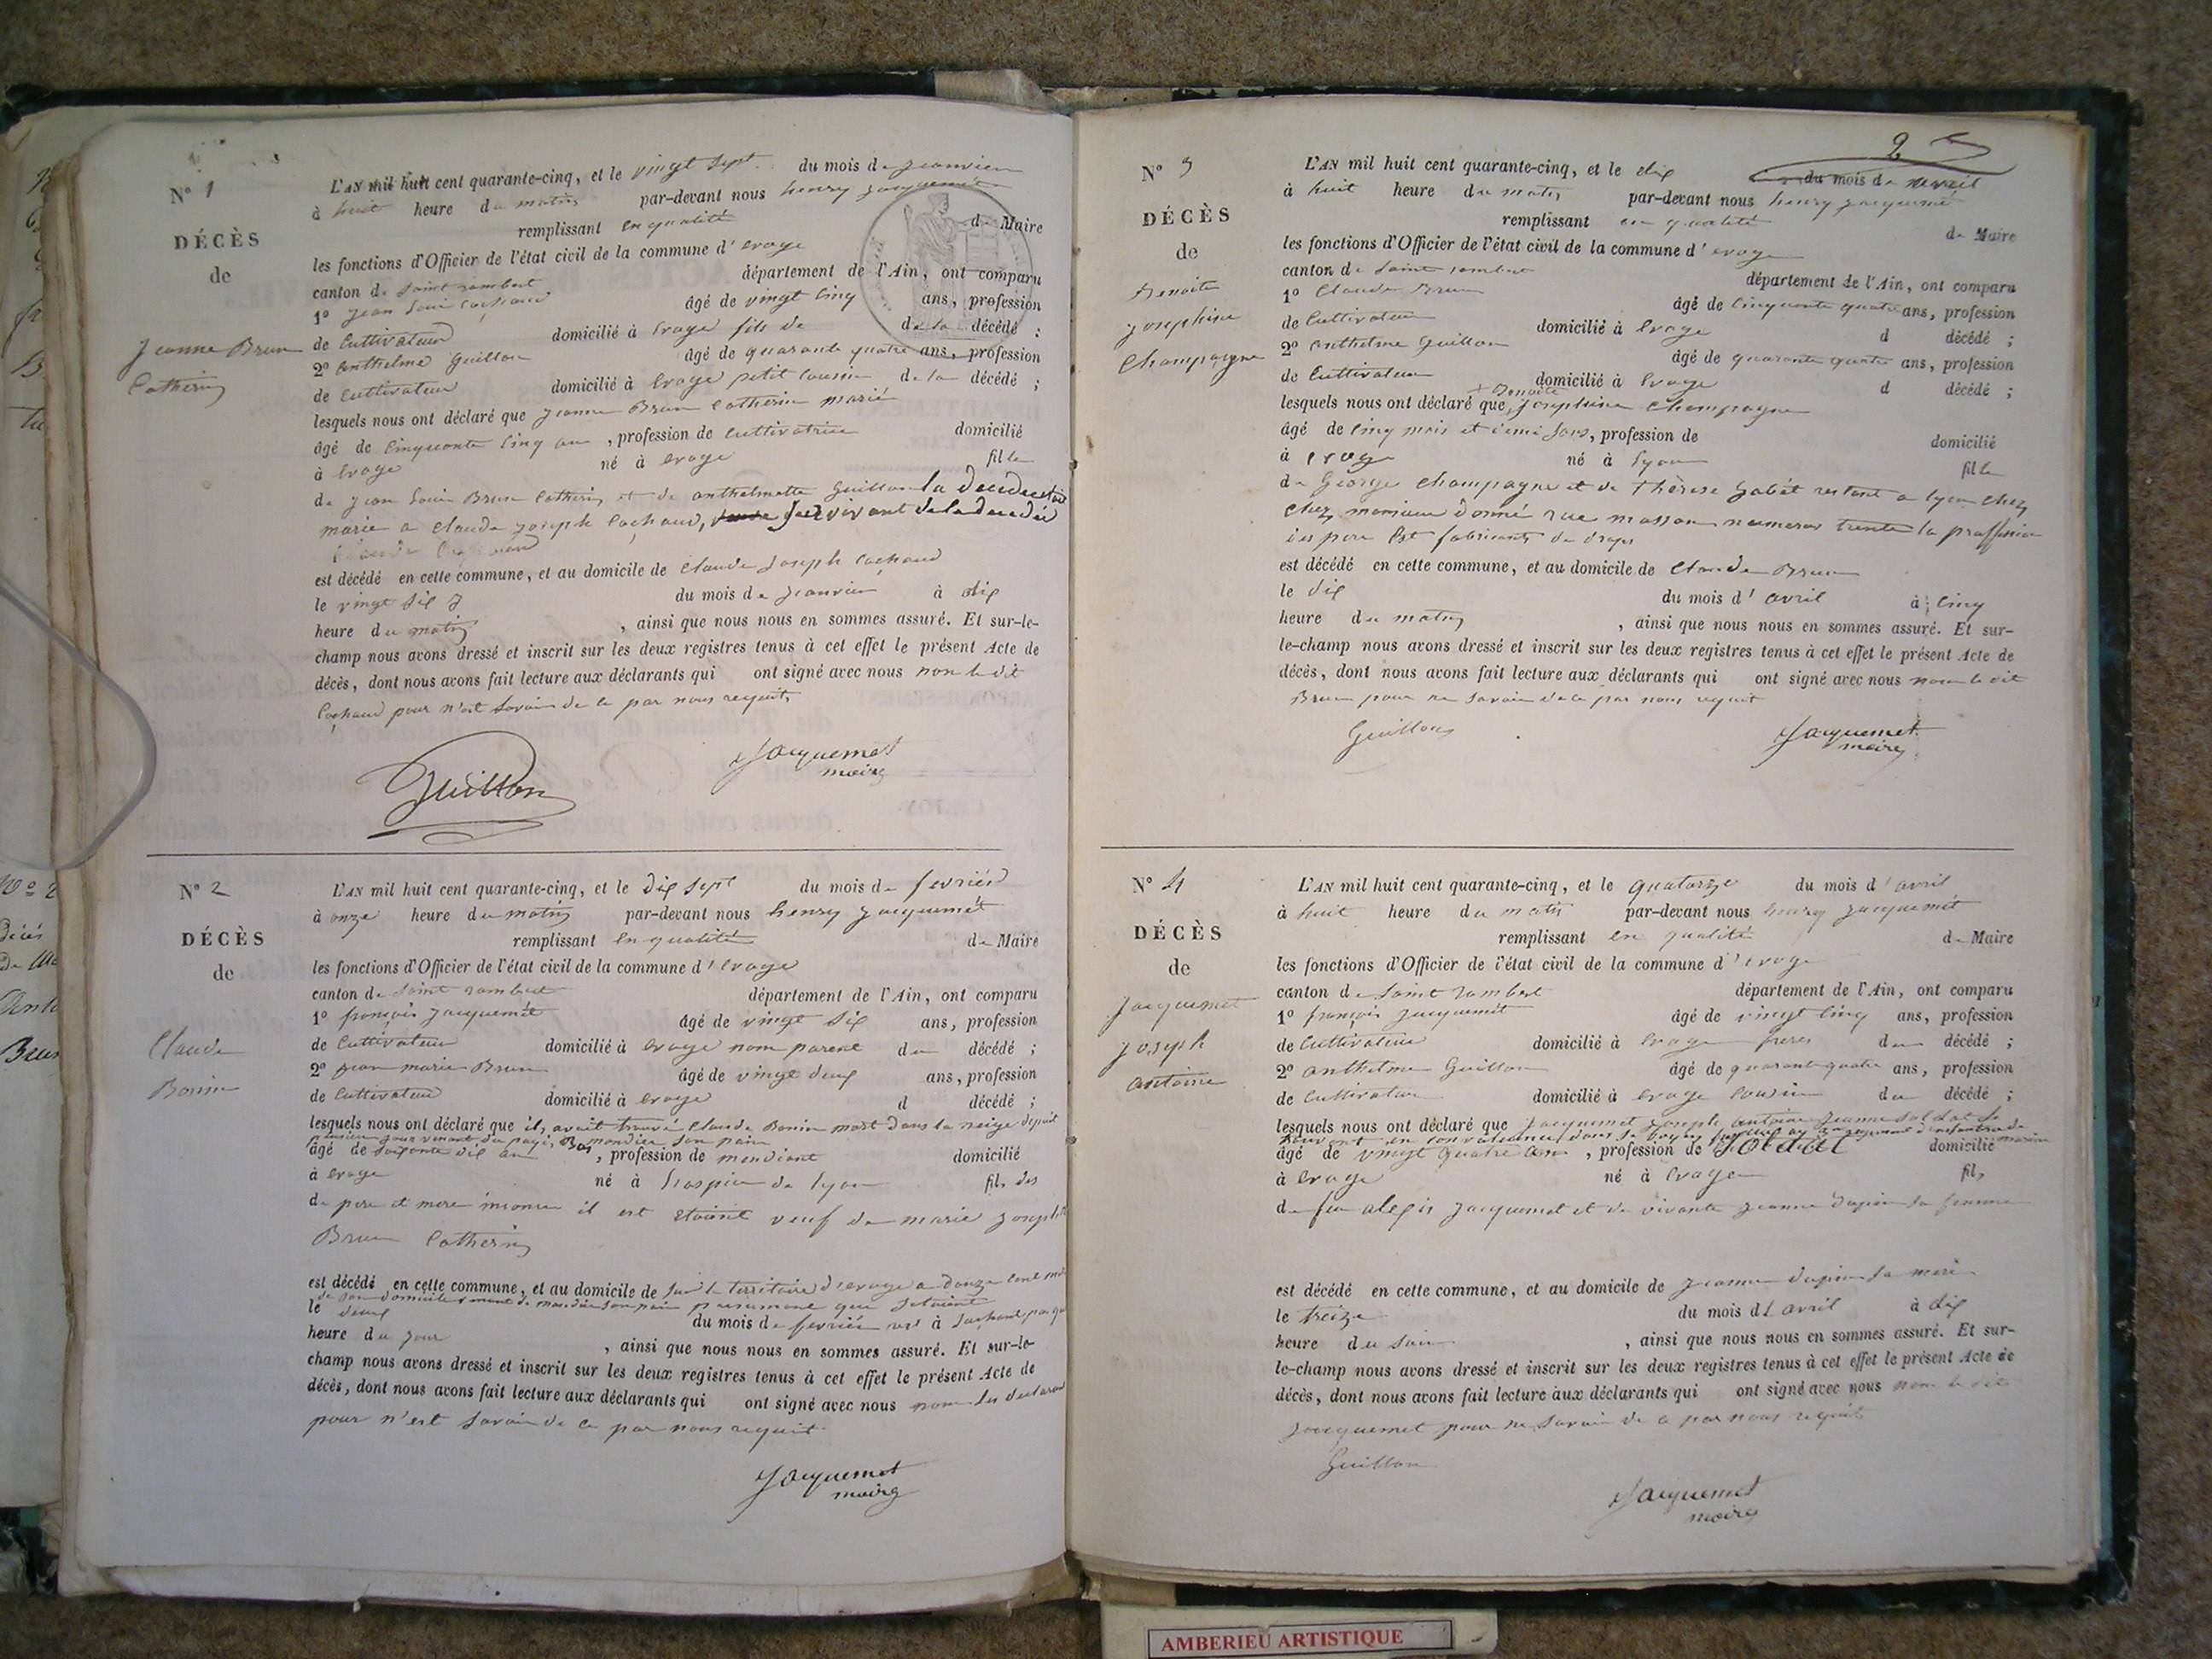 N° 1
DÉCÈS
de
Jeanne Brun
Catherin
L'AN mil huit cent quarante-cinq, et le vingt sept du mois de jeanvier
à huit heure du matin par-devant nous henry jacquemet
remplissant en qualité de Maire
les fonctions d'Officier de l'état civil de la commune d' evoge
canton de saint rambert département de l'Ain, ont comparu
1° jean loui cochaud âgé de vingt cinq ans, profession
de cultivateur domicilié à evoge fils de de la décédé ;
2° anthelme Guillon âgé de quarante quatre ans, profession
de cultivateur domicilié à evoge petit cousin de la décédé ;
lesquels nous ont déclaré que jeanne Brun catherin marié
âgé de cinquante cinq an, profession de cultivatrice domicilié
à evoge né à evoge fille
de jean loui Brun catherin et de anthelmette Guillon la
marie a claude joseph cochaud, vivant de la
est décédé en cette commune, et au domicile de claude joseph cochaud
le vingt six du mois de jeanvier à dix
heure du matin, ainsi que nous nous en sommes assuré. Et sur-le-
champ nous avons dressé et inscrit sur les deux registres tenus à cet effet le présent Acte de
décès, dont nous avons fait lecture aux déclarants qui ont signé avec nous non le dit
cochaud pour n'est savoir de ce par nous requit
Guillon
Jacquemet
maire
N° 2
DÉCÈS
de
Claude
Bonin
L'AN mil huit cent quarante-cinq, et le dix sept du mois de fevrier
à onze heure du matin par-devant nous henry jacquemét
remplissant en qualité de Maire
les fonctions d'Officier de l'état civil de la commune d' evoge
canton de saint rambert département de l'Ain, ont comparu
1° françois jacquemét âgé de vingt six ans, profession
de cultivateur domicilié à evoge nom parent du décédé ;
2° jean marie Brun âgé de vingt deux ans, profession
de cultivateur domicilié à evoge d décédé ;
lesquels nous ont déclaré que ils avait trouvé claude Bonin mort dans la neige depuit
plusieur jour venant du payi Bas mandier son pain
âgé de soixante dix an, profession de mendiant domicilié
à evoge né à hospice de lyon fils des
de pere et mere inconu il est etaient veuf de marie joseph
Brun catherin
est décédé en cette commune, et au domicile de sur le territoire d'evoge a douze cent
de son domicile venant de mandier son pain que
le deux du mois de fevrier à sachant pas
heure du jour, ainsi que nous nous en sommes assuré. Et sur-le-
champ nous avons dressé et inscrit sur les deux registres tenus à cet effet le présent Acte de
décès, dont nous avons fait lecture aux déclarants qui ont signé avec nous non les declarant
pour n'est savoir de ce par nous requit
Jacquemet
maire
2
N° 3
DÉCÈS
de
Benoite
josephine
champagne
L'AN mil huit cent quarante-cinq, et le dix du mois de avril
à huit heure du matin par-devant nous henry jacquemet
remplissant en qualité de Maire
les fonctions d'Officier de l'état civil de la commune d' evoge
canton de saint rambert département de l'Ain, ont comparu
1° claude Brun âgé de cinquante quatre ans, profession
de cultivateur domicilié à evoge d décédé ;
2° anthelme Guillon âgé de quarante quatre ans, profession
de cultivateur domicilié à evoge d décédé ;
+ Benoite
lesquels nous ont déclaré que josephine champagne
âgé de cinq mois et demi, profession de domicilié
à evoge né à lyon fille
de George champagne et de thèrese restant a lyon chez
chez monsieur Donné rue masson numeros trente la proffession
pere est fabricant de drapt
est décédé en cette commune, et au domicile de claude Brun
le dix du mois d' avril à cinq
heure du matin, ainsi que nous nous en sommes assuré. Et sur-
le-champ nous avons dressé et inscrit sur les deux registres tenus à cet effet le présent Acte de
décès, dont nous avons fait lecture aux déclarants qui ont signé avec nous non le dit
Brun pour ne savoir de ce par nous requit
Guillon
Jacquemet
maire
N° 4
DÉCÈS
de
Jacquemet
joseph
antoine
L'AN mil huit cent quarante-cinq, et le quatorze du mois d' avril
à huit heure du matin par-devant nous henry jacquemét
remplissant en qualité de Maire
les fonctions d'Officier de l'état civil de la commune d' evoge
canton de saint rambert département de l'Ain, ont comparu
1° françois jacquemét âgé de vingt cinq ans, profession
de cultivateur domicilié à evoge freres du décédé ;
2° anthelme Guillon âgé de quarant quatre ans, profession
de cultivateur domicilié à evoge cousin du décédé ;
lesquels nous ont déclaré que jacquemet joseph antoine jeanne soldat
en convalecence dans regiment d'infanterie de marine
âgé de vingt quatre an, profession de soldat domicilié
à evoge né à evoge fils
de feu alexis jacquemet et de vivante jeanne dupin sa femme
est décédé en cette commune, et au domicile de jeanne dupin sa mere
le treize du mois d avril à dix
heure du soir, ainsi que nous nous en sommes assuré. Et sur-
le-champ nous avons dressé et inscrit sur les deux registres tenus à cet effet le présent Acte de
décès, dont nous avons fait lecture aux déclarants qui ont signé avec nous non le dit
jacquemet pour ne savoir de ce par nous requit
Guillon
Jacquemet
maire
AMBERIEU ARTISTIQUE